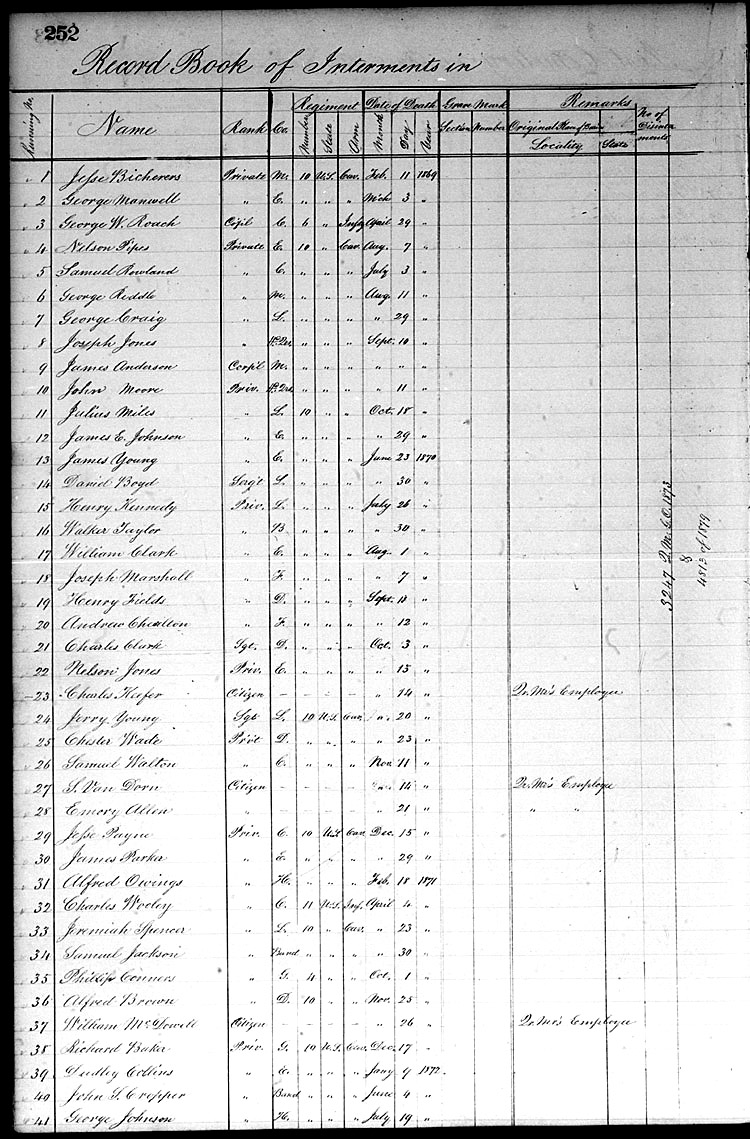 252
Record Book of Interments in
Running No. Name Rank Co. Regiment Number State Arm Date of Death Month Day Year Grave Mark Section Number Remarks Original Place of Locality State No of Disinterments
1 Jesse Bicherers Private M. 10 U.S. Cav. Feb. 11 1869
2 George Manwell " C. " " " Mch 3 "
3 George W. Roach C. 6 " Inf April 29 "
4 Nelson Pipes Private E. 10 " Cav. Aug. 7 "
5 Samuel Rowland " C. " " " July 3 "
6 George Riddle " M. " " " Aug 11 "
7 George Craig " L. " " " " 29 "
8 Joseph Jones " " " " Sept. 10 "
9 James Anderson Corpl M. " " " " " "
10 John Moore Priv. " " " " 11 "
11 Julius Miles " L. 10 " " Oct. 18 "
12 James E. Johnson " C. " " " " 29 "
13 James Young " C. " " " June 23 1870
14 Daniel Boyd Sergt L. " " " " 30 "
15 Henry Kennedy Priv. L. " " " July 26 "
16 Walker Taylor " B " " " " 30 "
17 William Clark " E. " " " Aug. 1 "
18 Joseph Marshall " F. " " " " 7 "
19 Henry Fields " D. " " " Sept. "
20 Andrew " F. " " " " 12 "
21 Charles Clark Sgt. D. " " " Oct. 3 "
22 Nelson Jones Priv. E. " " " " 15 "
23 Charles Keefer Citizen - - - - " 14 " Qr. Mr's Employee
24 Jerry Young Sgt L. 10 U.S. Cav. " 20 "
25 Chester Wade Privt D. " " " " 23 "
26 Samuel Walton " C. " " " Nov 11 "
27 S. Van Dorn Citizen - - - - " 14 " Qr. Mr's Employee
28 Emory Allen " - - - - " 21 " " "
29 Jesse Payne Priv. C. 10 U.S. Cav. Dec. 15 "
30 James Parker " E. " " " " 29 "
31 Alfred Owings " H. " " " Feb. 18 1871
32 Charles Wooley " C. 11 U.S. Inf. April 4 "
33 Jeremiah Spencer " L. 10 " Cav. " 23 "
34 Samuel Jackson " Band " " " " 30 "
35 Phillip Conners " G. 4 " " Oct. 1 "
36 Alfred Brown " D. 10 " " Nov. 25 "
37 William McDowell Citizen - - - - " 26 " Qr. Mr's Employee
38 Richard Baker Priv. G. 10 U.S. Cav. Dec. 17 "
39 Dudley Collins " " " " Jany 9 1872
40 John S. Cropper " Band " " " June 4 "
41 George Johnson " H. " " " July 19 "
3247 Q.M.G.O. 1873
&
4813 of 1879